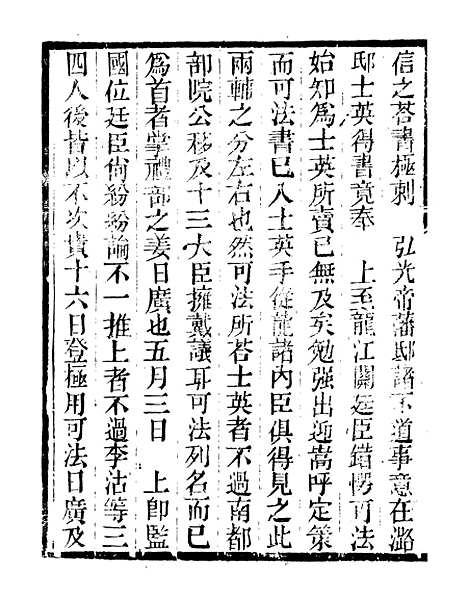 信之荅書極刺　弘光帝藩邸諸不道事意在潞
邸士英得書竟奉　上至龍江關廷臣錯愕可法
始知爲士英所賣已無及矣勉强出迎嵩呼定策
而可法書已入士英手從龍諸內臣俱得見之此
兩輔之分左右也然可法所荅士英者不過南都
部院公移及十三大臣擁戴議耳可法列名而已
爲首者掌禮部之姜日廣也五月三日　上卽監
國位廷臣尙紛紛論不一推上者不過李沾等三
四人後皆以不次賞十六日登極用可法日廣及